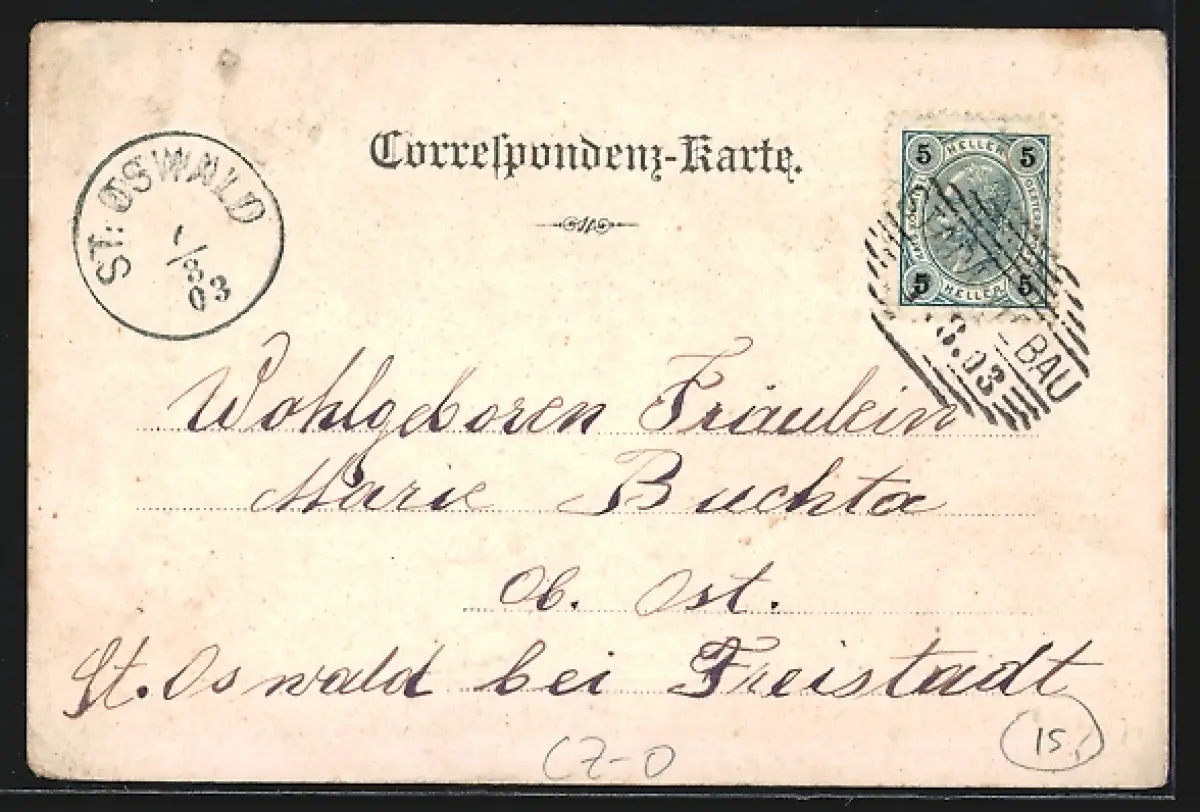 Correspondenz-Karte.
ST: OSWALD
1/8
03
5 HELLER 5
5 HELLER 5
BAU
8.03
Wohlgeboren Fräulein
Marie Buchta
Ob. Öst.
St. Oswald bei Freistadt
CZ-O
15